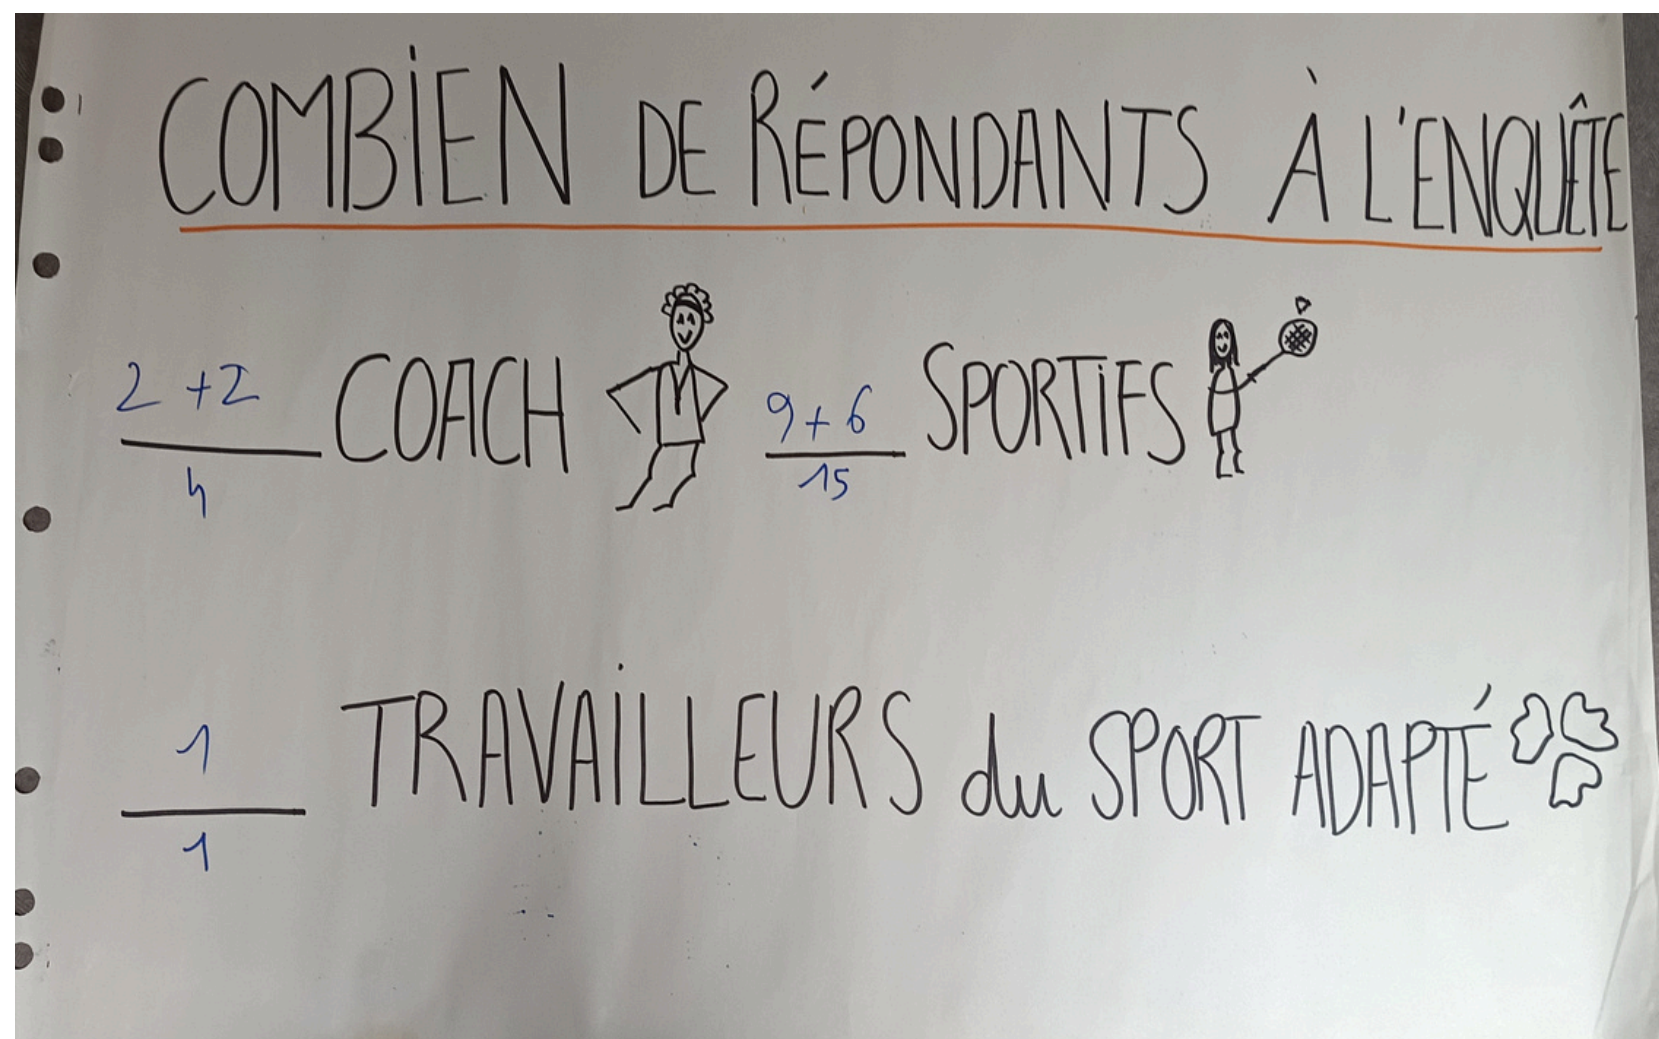 COMBIEN DE RÉPONDANTS À L'ENQUÊTE
2 +2 COACH 9+6 SPORTIFS
4 15
1 TRAVAILLEURS du SPORT ADAPTÉ
1